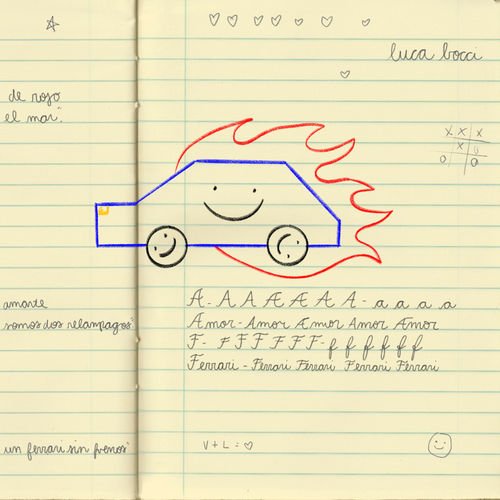 de rojo
el mar."
amarte
somos dos relampagos"
un ferrari sin frenos"
luca bocci
X X X
X O
O O
A- A A A A A A - a a a a
Amor- Amor Amor Amor Amor
F- F F F F F F- f f f f f f
Ferrari - Ferrari Ferrari Ferrari Ferrari
V + L = ♡